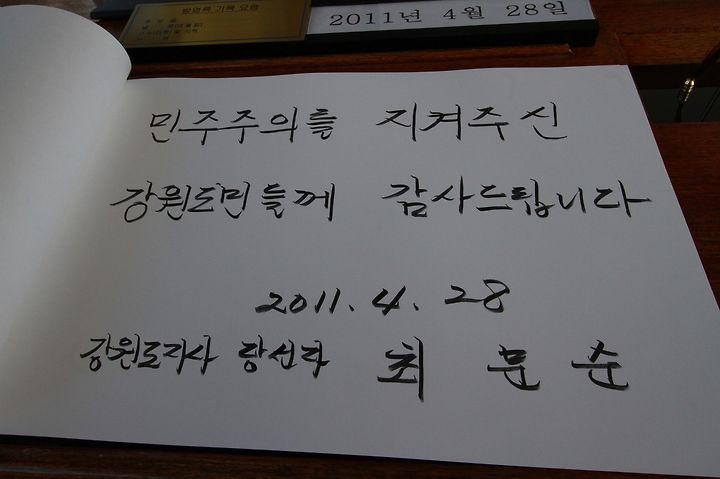 방명록 기록 요령
2011年 4월 28일
민주주의를 지켜주신
강원도민들께 감사드립니다
2011. 4. 28
강원도지사 당선자 최문순